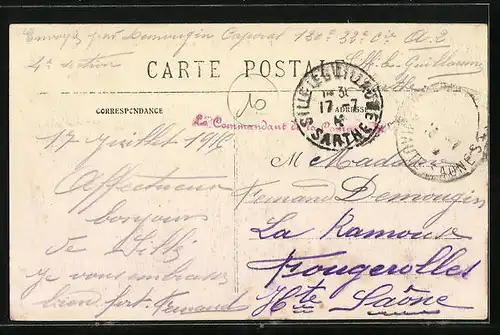 Envoyé par Demougin Caporal 130e 32e Cie A.2
4e section
Sillé-le-Guillaume
Sarthe
CARTE POSTALE
CORRESPONDANCE
ADRESSE
10
SILLE-LE-GUILLAUME
17-7
SARTHE
Le Commandant
17 Juillet 191
Affectueux
bonjours
de Sillé
Je vous embrasse
bien fort. Fernand
M Madame
Fernand Demougin
La Ramouse
Fougerolles
Hte Saône